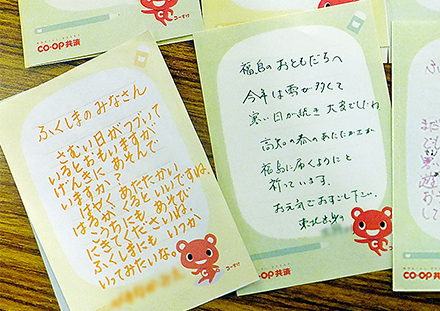 CO·OP共済
ふくしまのみなさん
さむい日がつづいて
いるとおもいますが
げんきにあそんで
いますか?
はやく あたたかい
はるがくるといいですね。
こうちにも、あそび
にきてくださいね。
ふくしまにも いつか
いってみたいな。
コーすけ
CO·OP共済
福島のおともだちへ
今年は雪が多くて
寒い日が続き 大変でしたね
高知の春のあたたかさが
福島に届くようにと
祈っています。
お元気でおすごし下さい。
コーすけ
CO·OP共済
CO·OP共済